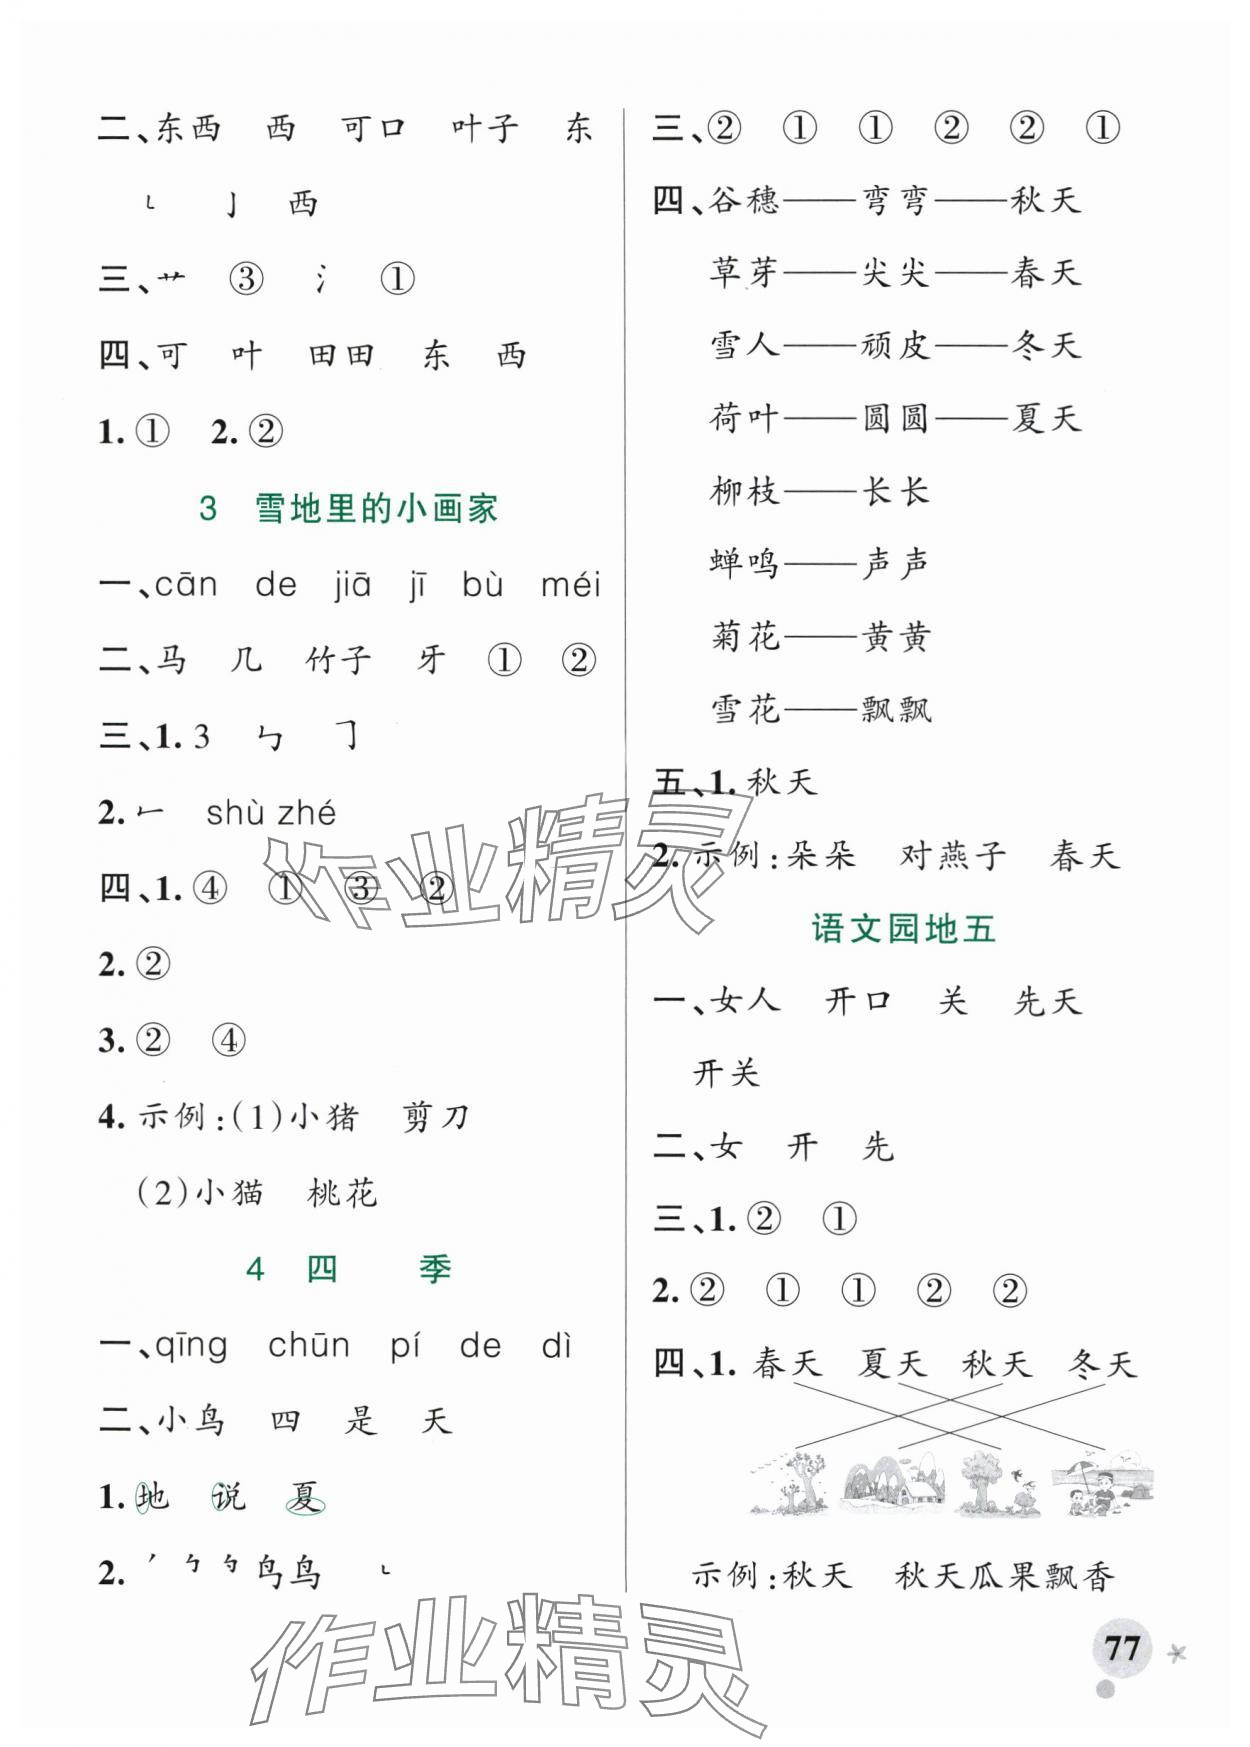 二、东西 西 可口 叶子 东
㇄ 亅 西
三、艹 ③ 氵 ①
四、可 叶 田田 东 西
1. ① 2. ②
3 雪地里的小画家
一、cān de jiā jī bù méi
二、马 几 竹子 牙 ① ②
三、1. 3 ㄣ ㇆
2. 𠂉 shù zhé
四、1. ④ ① ③ ②
2. ②
3. ② ④
4. 示例:(1)小猪 剪刀
(2)小猫 桃花
4 四 季
一、qīng chūn pí de dì
二、小鸟 四 是 天
1. 地 说 夏
2. ㇒ ㄅ 鸟鸟 ㇄
三、② ① ① ② ② ①
四、谷穗——弯弯——秋天
草芽——尖尖——春天
雪人——顽皮——冬天
荷叶——圆圆——夏天
柳枝——长长
蝉鸣——声声
菊花——黄黄
雪花——飘飘
五、1. 秋天
2. 示例:朵朵 对燕子 春天
语文园地五
一、女人 开口 关 先天
开关
二、女 开 先
三、1. ② ①
2. ② ① ① ② ②
四、1. 春天 夏天 秋天 冬天
示例:秋天 秋天瓜果飘香
77
作业精灵
作业精灵